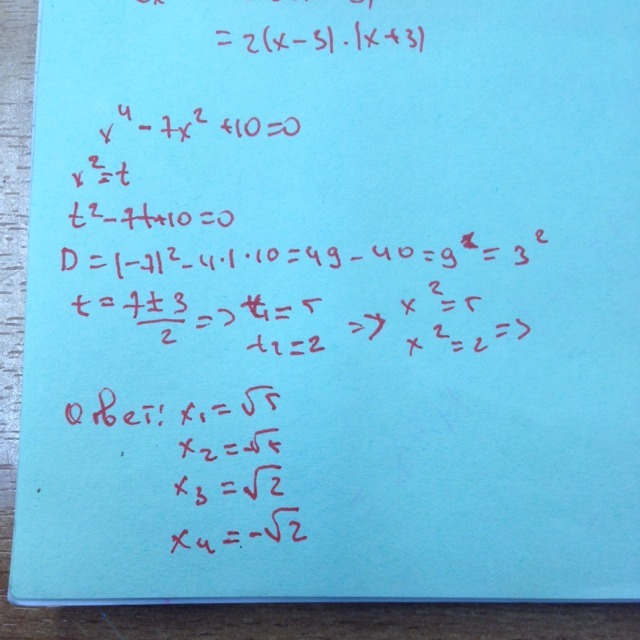 = 2(x-3)·(x+3)
x⁴ - 7x² + 10 = 0
x² = t
t² - 7t + 10 = 0
D = (-7)² - 4·1·10 = 49 - 40 = 9 = 3²
t = (7 ± 3)/2 => t₁ = 5 => x² = 5
t₂ = 2 x² = 2 =>
Ответ: x₁ = √5
x₂ = -√5
x₃ = √2
x₄ = -√2